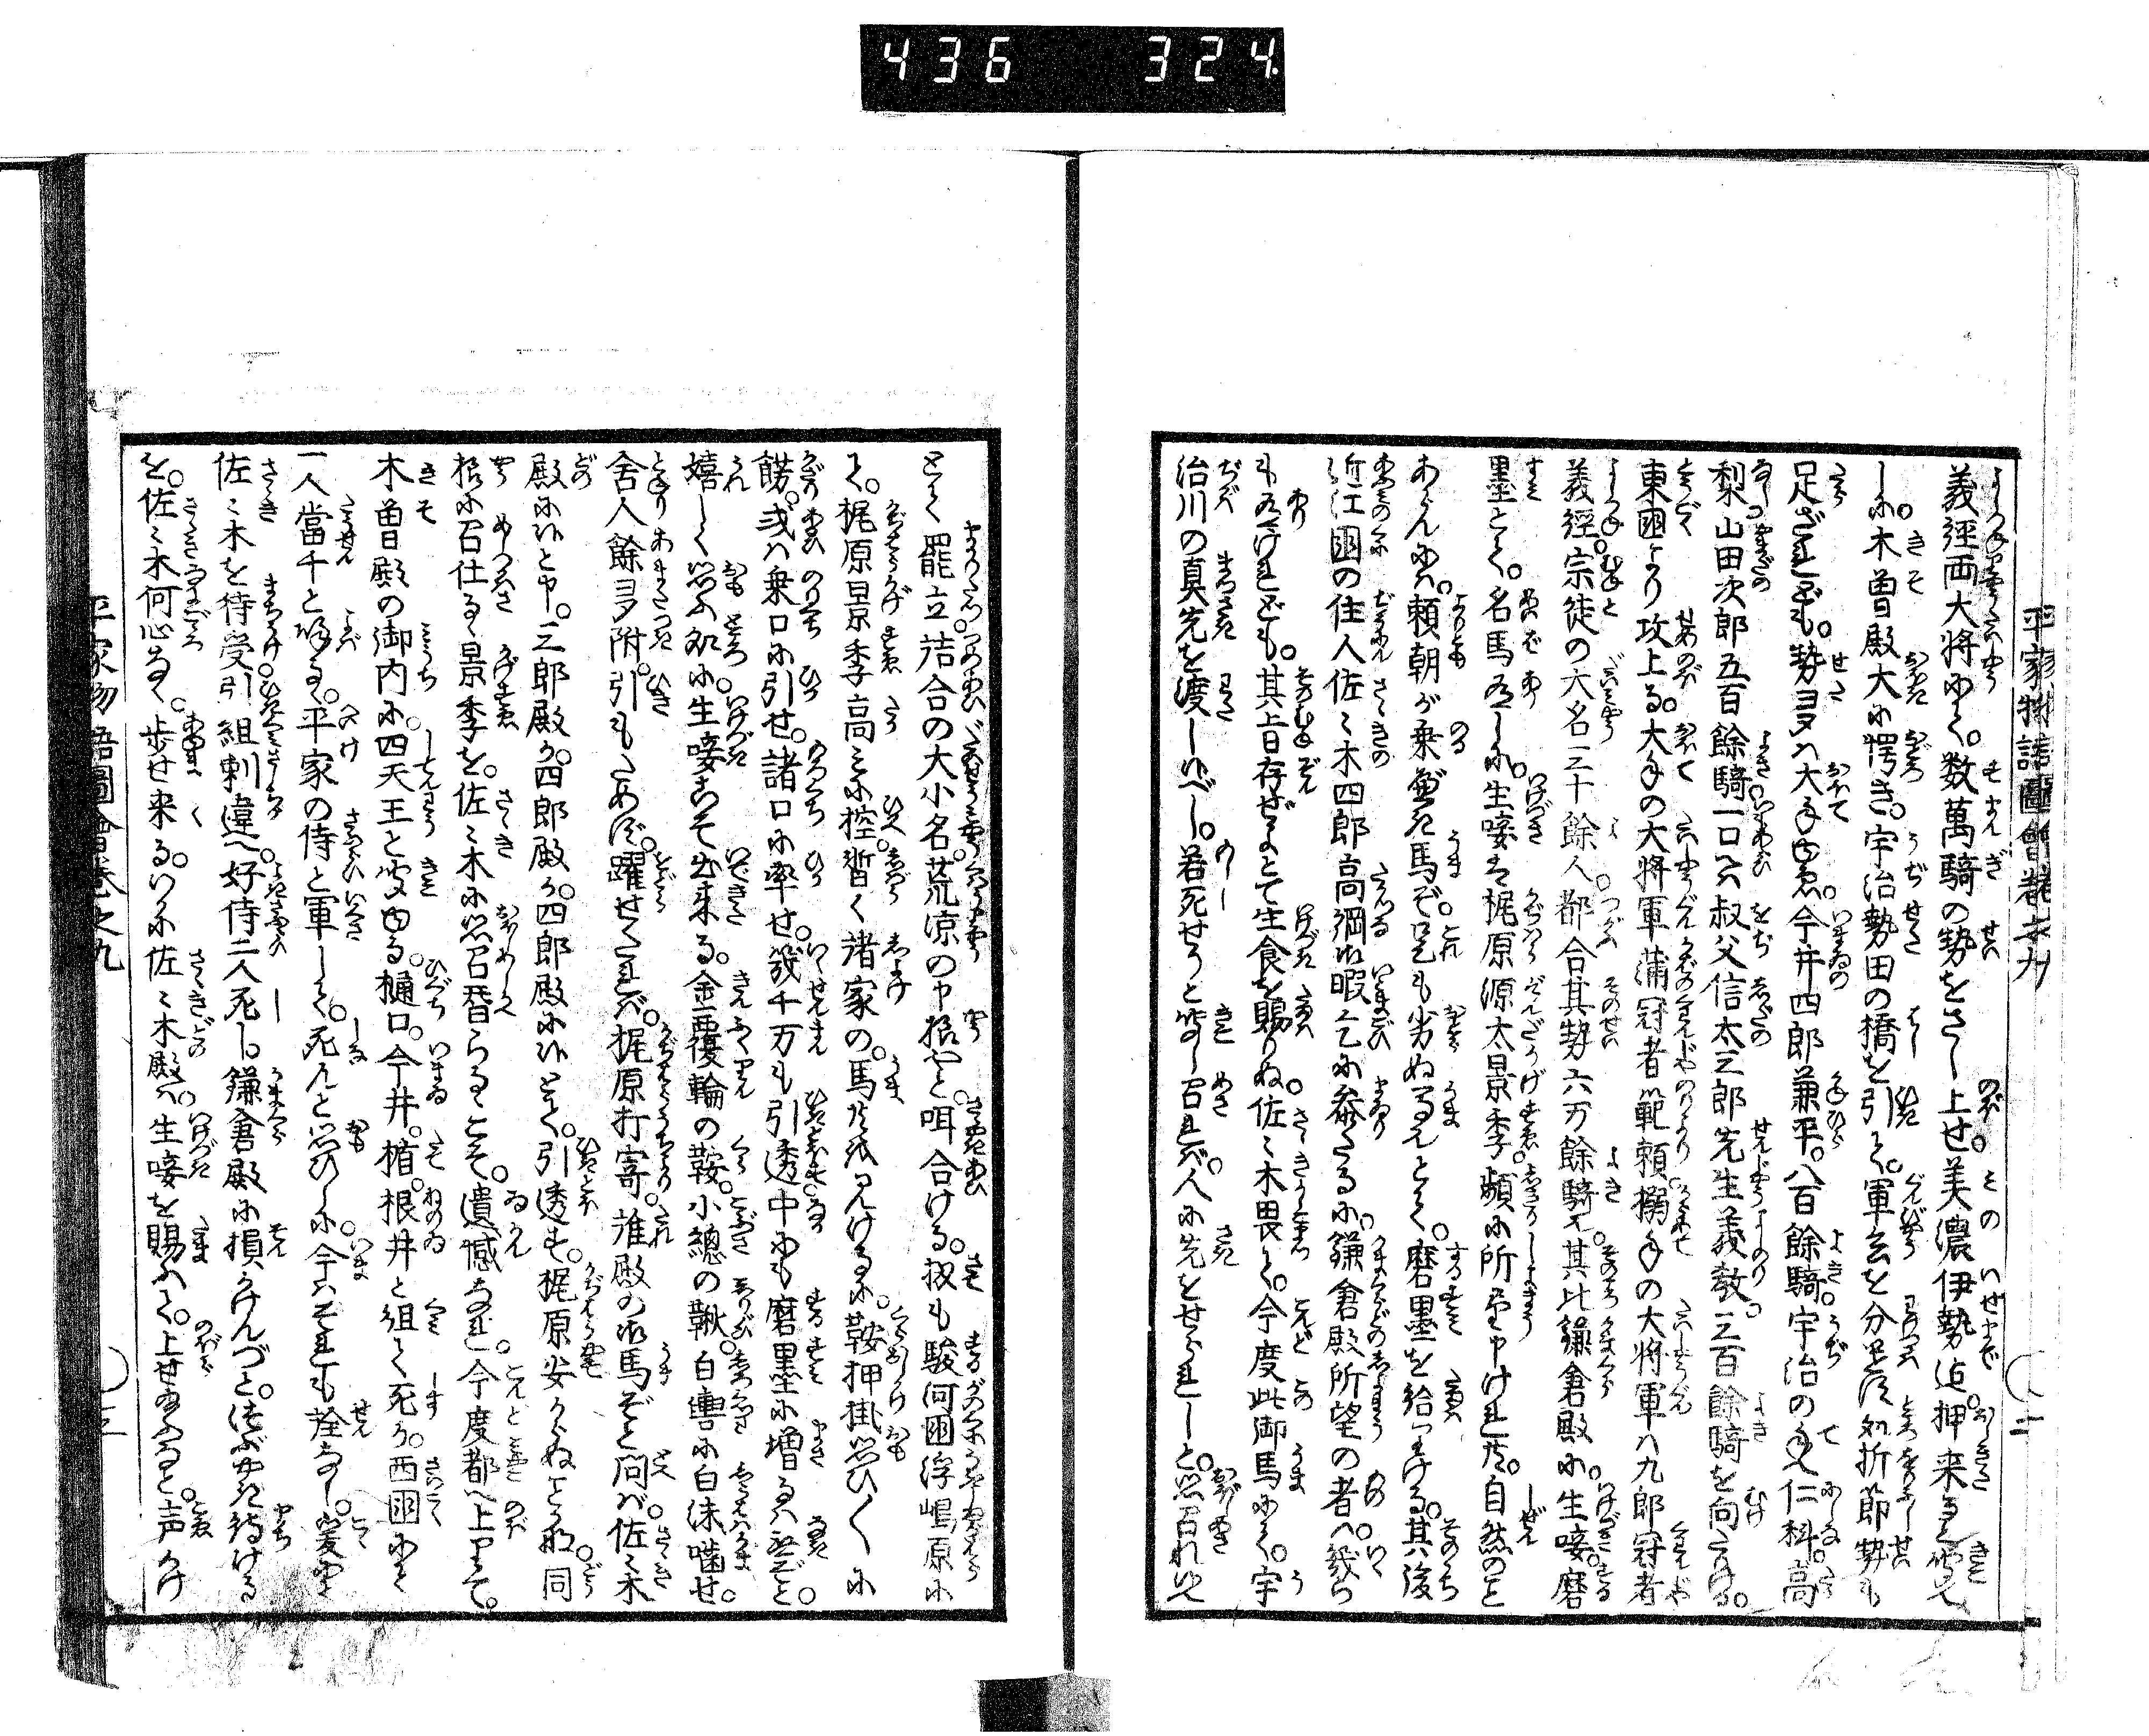 436 324
平家物語圖會巻之九
義經両大将にて。数萬騎の勢をさし上せ。美濃伊勢迄。押来ると聞え
しに。木曽殿大に愕き。宇治勢田の橋を引て。軍兵を分つ処折節勢も
足ざれども。勢多ハ大手なれバ。今井四郎兼平。八百余騎。宇治の手へ仁科。高
梨山田次郎五百餘騎一口へ叔父信太三郎先生義教。三百餘騎を向ける。
東國より攻上る。大手の大将軍蒲冠者範頼。搦手の大将軍ハ九郎冠者
義經。宗徒の大名三十餘人。都合其勢六万餘騎也。其比鎌倉殿に。生唼。磨
墨とて。名馬有しに。生唼を梶原源太景季。頻に所望申けれ共。自然のこと
あらんにハ。頼朝が乗べき馬ぞ。是も劣ぬ馬とて。磨墨を給りける。其後
近江國の住人佐々木四郎高綱御暇乞に参たるに。鎌倉殿所望の者ハ幾ら
も有けれども。其旨存ぜよとて生食を賜りぬ。佐々木畏て。今度此御馬にて。宇
治川の真先を渡し候べし。若死せりと聞し召れバ。人に先をせられしと。思召れ候へ
とて罷立。詰合の大小名。荒凉の申様やと。咡合ける。扨も駿河國浮嶋原に
て。梶原景季高ミに控。暫く諸家の。馬共を見けるに。鞍押掛思ひ〳〵に
餝。或ハ乗口に引せ。諸口に牽せ。幾千万も引透中にも磨墨に増るハ無ぞと。
嬉しく思ふ処に生唼こそ出来る。金覆輪の鞍。小總の鞦。白轡に白沫噛せ。
舎人餘多附。引もためず。躍せたれバ。梶原打寄。誰殿の御馬ぞと問バ。佐々木
殿に候と申。三郎殿か。四郎殿か。四郎殿に候とて。引透す。梶原安からぬことかな。同
様に召仕るゝ景季を。佐々木に思召替らるゝこそ。遺憾なれ。今度都へ上りて。
木曽殿の御内に。四天王と聞ゆる。樋口。今井。楯。根井と組て死か。西國にて
一人當千と呼るゝ。平家の侍と軍して。死んと思ひしに。今ハそれも詮なし。爰にて
佐々木を待受引組刺違へ好侍二人死し。鎌倉殿に損かけんづと。つぶやき待ける
を。佐々木何心なく。歩せ来る。いかに佐々木殿ハ。生唼を賜ハて。上せ給ふなと。声かけ
平家物語圖會巻之九